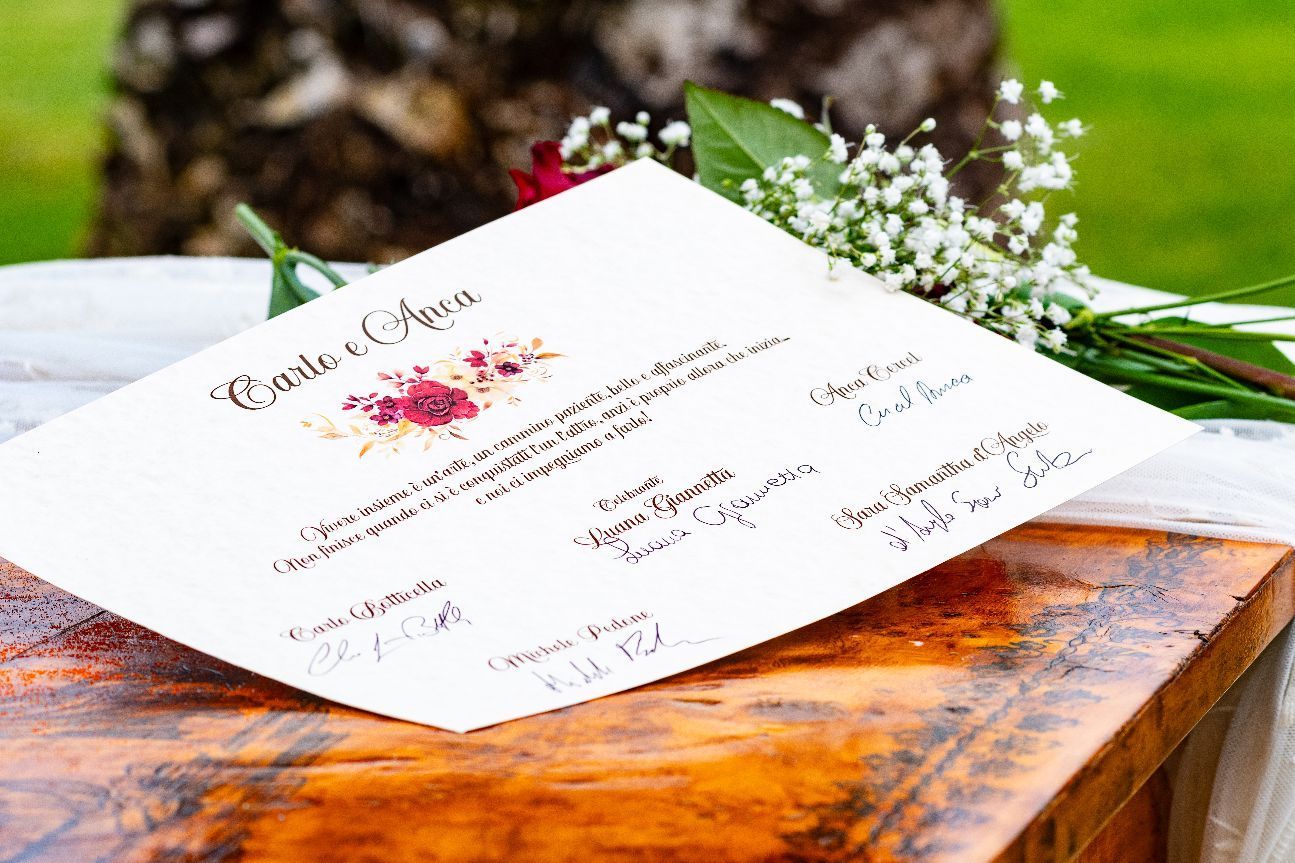 Carlo e Anca
Vivere insieme è un'arte, un cammino paziente, bello e affascinante.
Non finisce quando ci si è conquistati l'un l'altro, anzi è proprio allora che inizia
e noi ci impegniamo a farlo!
Anca Cercal
Celebrante
Luana Giannetta
Luana Giannetta
Sara Samantha d'Angelo
Carlo Botticella
Michele Pedone